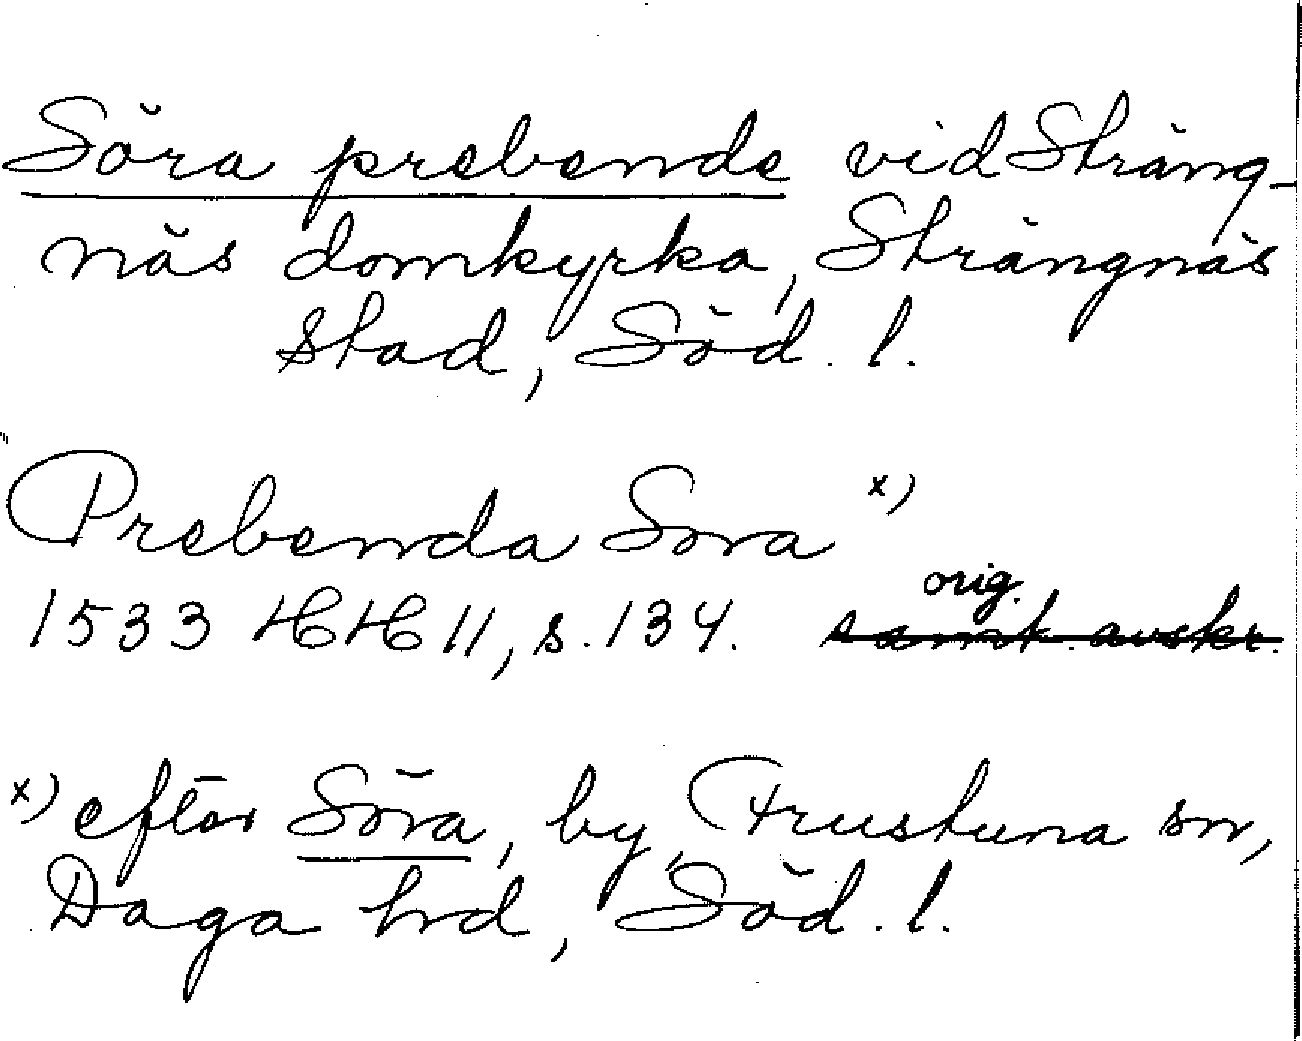 Söra prebende vid Sträng-
näs domkyrka, Strängnäs
stad, Söd. l.
Prebenda Sora x)
orig.
1533 HH 11, s. 134. samt. avskr.
x) efter Söra, by, Frustuna sn,
Daga hd, Söd. l.